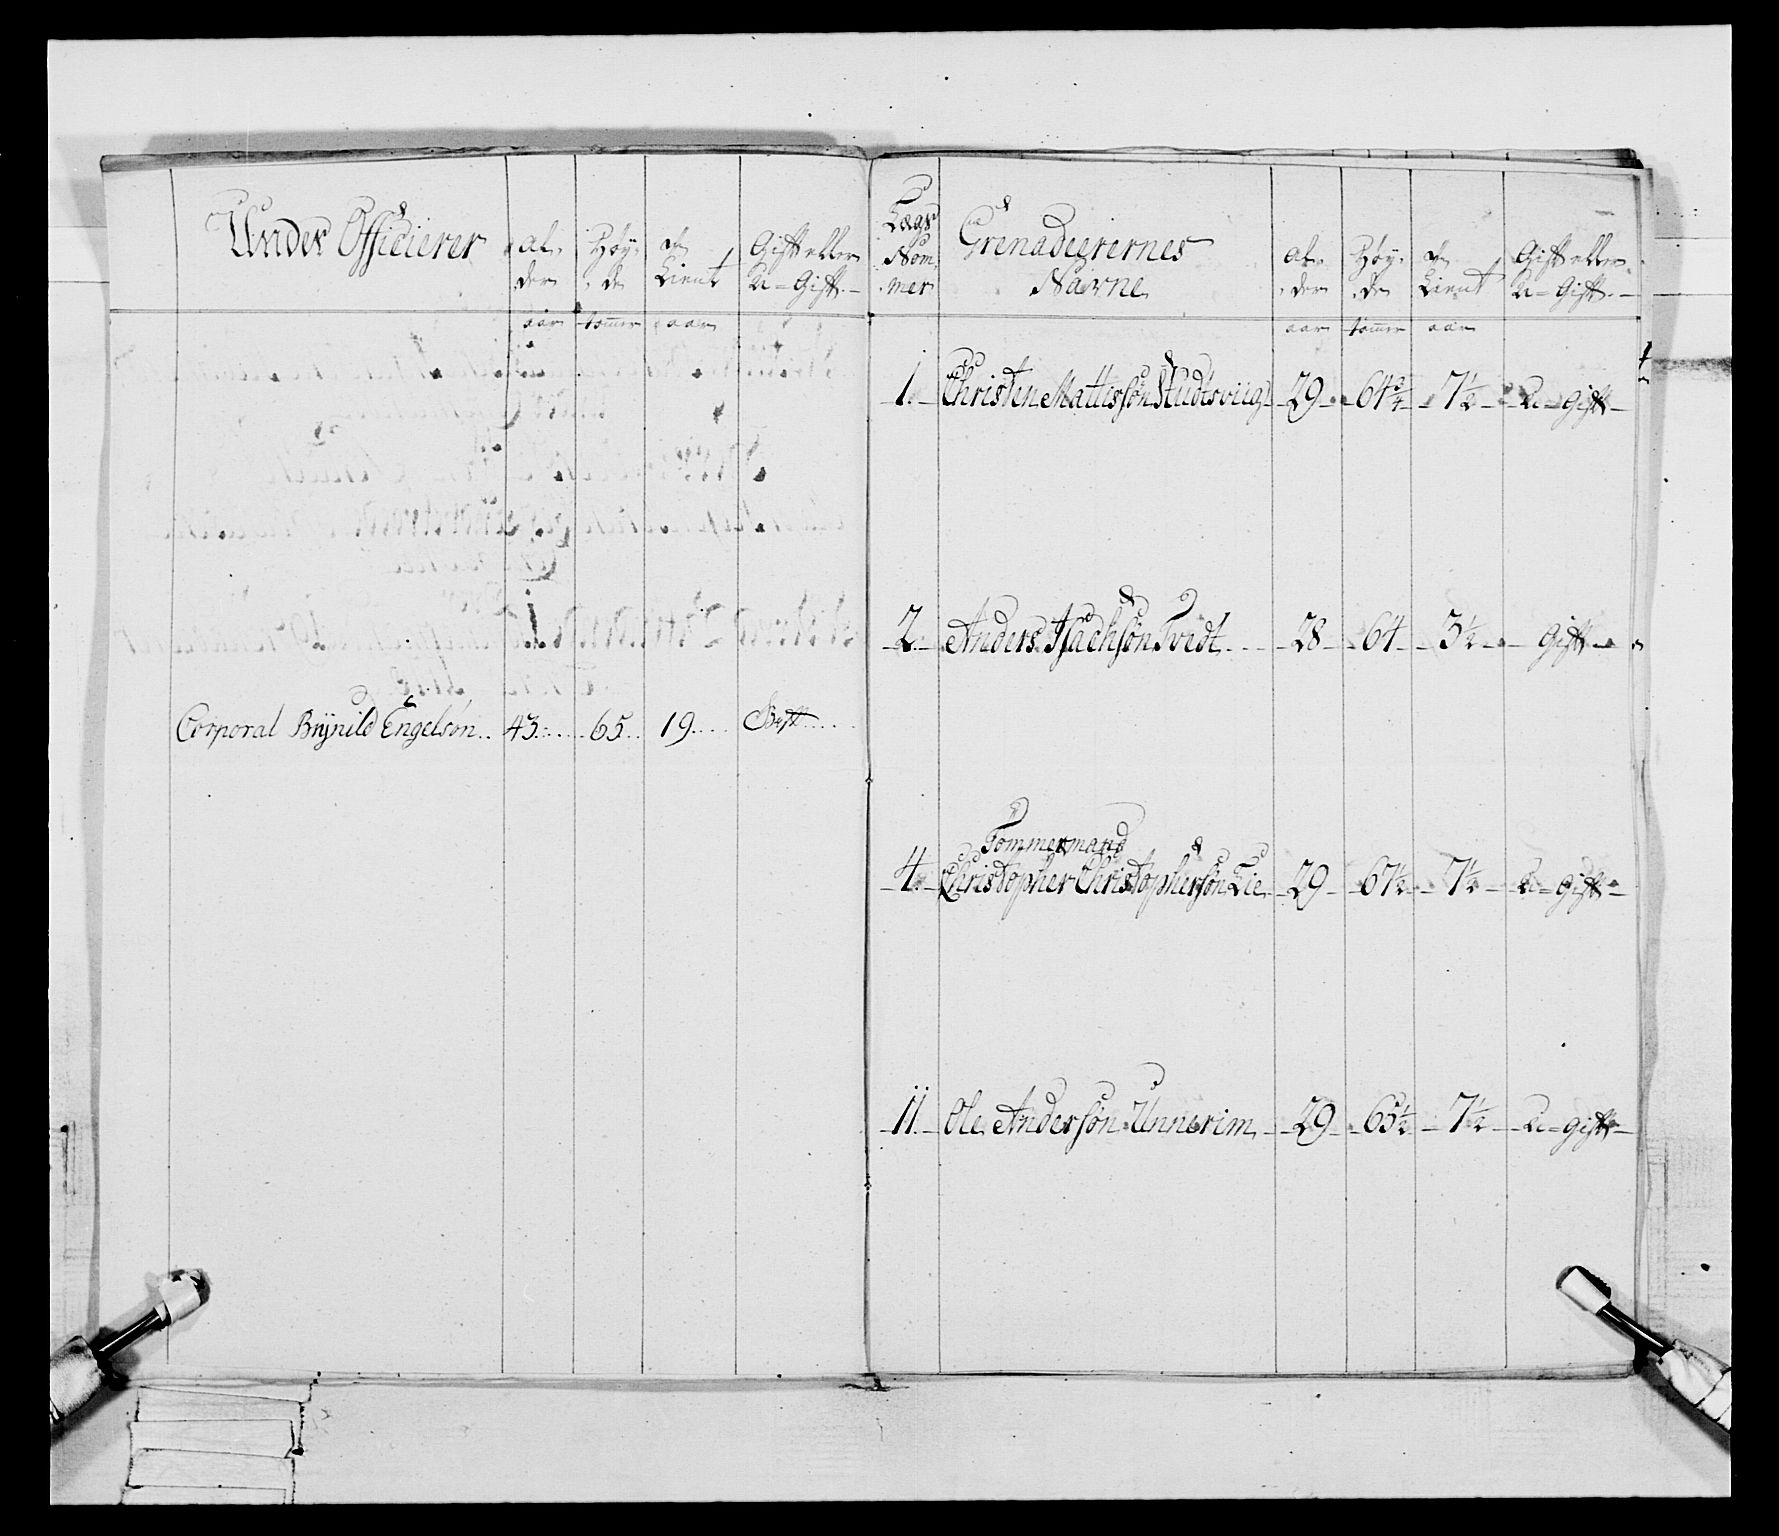 Under Officierer
al-
der
Høy-
de
Tient
Gift eller
U=Gift
aar tomer aar
Corporal Brÿnild Engelsøn 43 65 19 Gift
Lægs
Nom
mer
Grenadeerernes
Navne
al-
der
Høy-
de
Tient
Gift eller
U=Gift
aar tomer aar
1. Christen Mattissøn Studtsviig 29 64 3/4 7 1/2 U=gift
2. Anders Isachsøn Tvedt 28 64 3 1/2 Gift
Tommermand
4. Christopher Christophersøn Lie 29 67 1/2 7 1/2 U=gift
11. Ole Andersøn Unnerim 29 65 1/2 7 1/2 U=gift